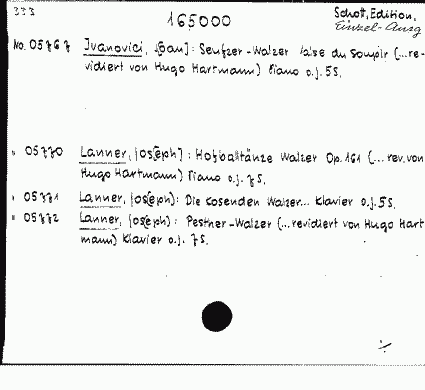 333
165000
Schott, Edition,
Einzel-Ausg
No. 05767 Ivanovici, [Joan]: Seufzer-Walzer Valse du Soupir (...re-
vidiert von Hugo Hartmann) Piano o.J. 5S.
" 05770 Lanner, Jos[eph]: Hofballtänze Walzer Op. 161 (...rev. von
Hugo Hartmann) Piano o.J. 7S.
" 05771 Lanner, Jos[eph]: Die Kosenden Walzer... Klavier o.J. 5S.
" 05772 Lanner, Jos[eph]: Pesther-Walzer (...revidiert von Hugo Hart
mann) Klavier o.J. 7S.